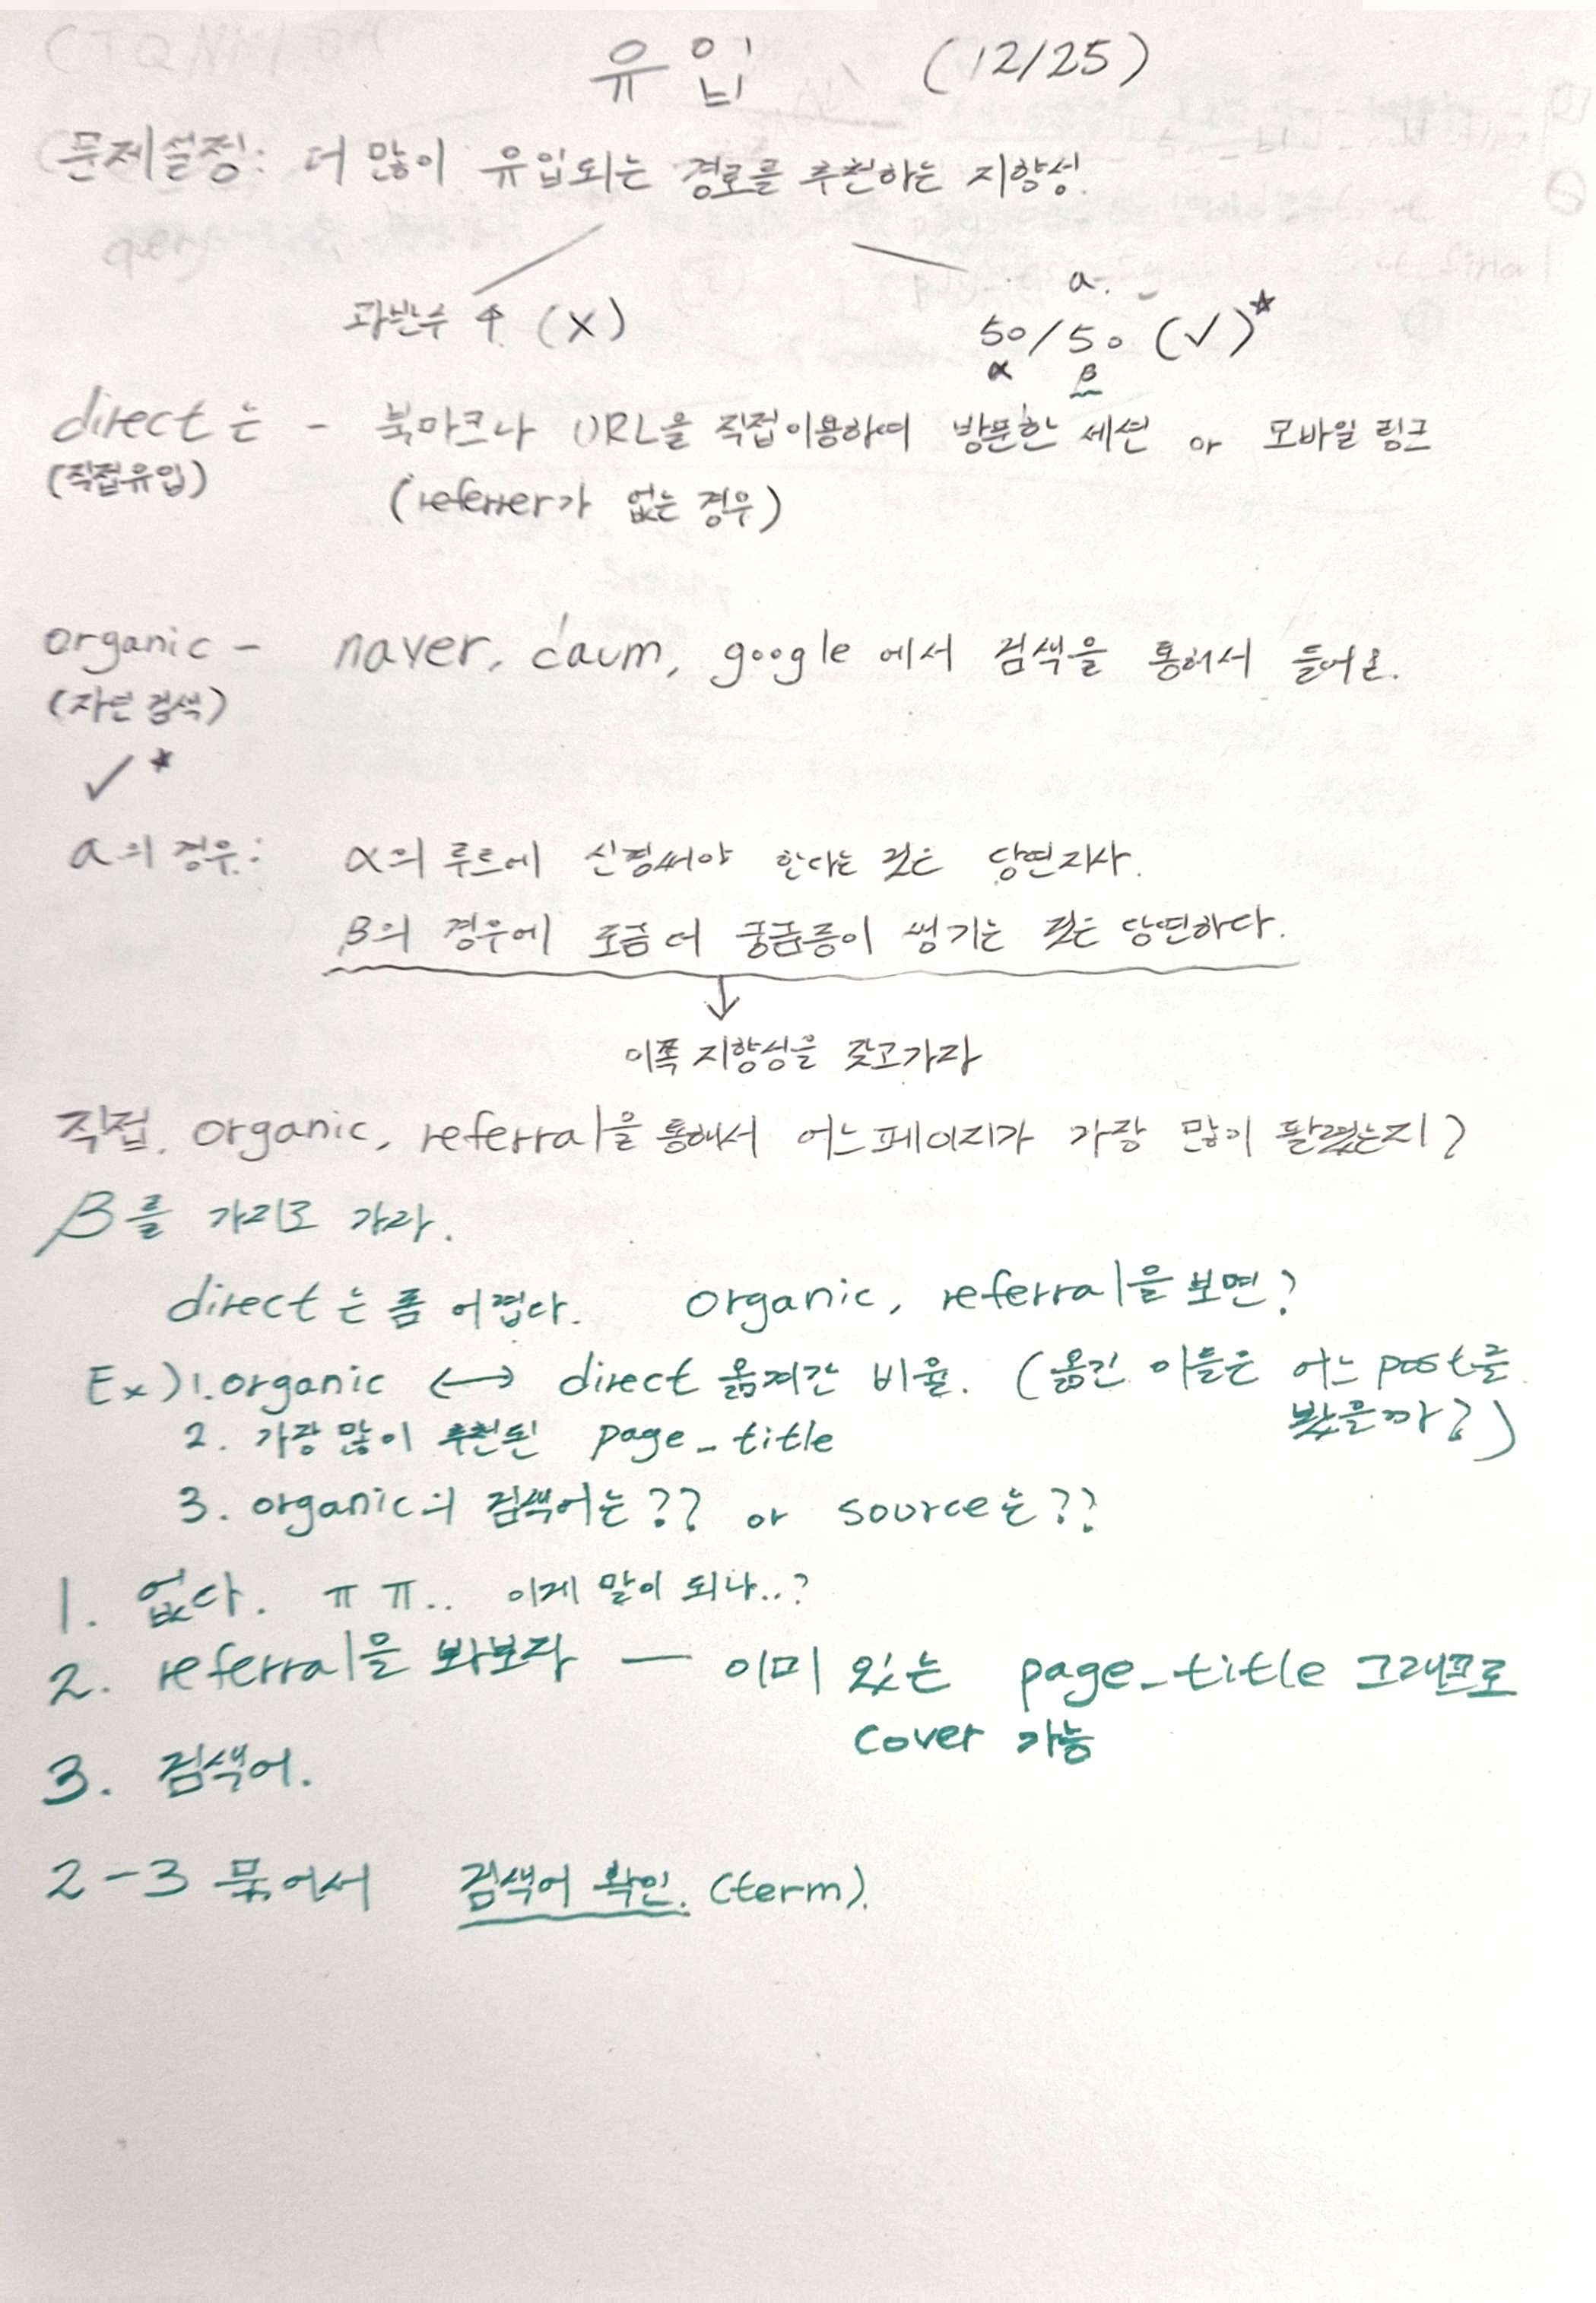 유입 (12/25)
문제설정: 더 많이 유입되는 경로를 추천하는 지향성.
과반수 ↑ (X)
a.
50/50 (✓)*
α β
direct는 - 북마크나 URL을 직접이용하여 방문한 세션 or 모바일 링크
(직접유입) (referrer가 없는 경우)
organic - naver, daum, google 에서 검색을 통해서 들어온.
(자연 검색)
✓*
a의 경우: α의 루트에 신경써야 한다는 것은 당연지사.
β의 경우에 조금 더 궁금증이 생기는 것은 당연하다.
↓
이쪽 지향성을 갖고가자
직접, organic, referral을 통해서 어느페이지가 가장 많이 팔렸는지?
β를 가지고 가라.
direct는 좀 어렵다. organic, referral을 보면?
Ex) 1. organic ↔ direct 옮겨간 비율. (옮긴 이들은 어느 post를
봤을까?)
2. 가장 많이 추천된 page_title
3. organic의 검색어는?? or source는??
1. 없다. ㅠㅠ.. 이게 말이 되나..?
2. referral을 봐보자 — 이미 있는 page_title 그래프로
cover 가능
3. 검색어.
2-3 묶어서 검색어 확인. (term).